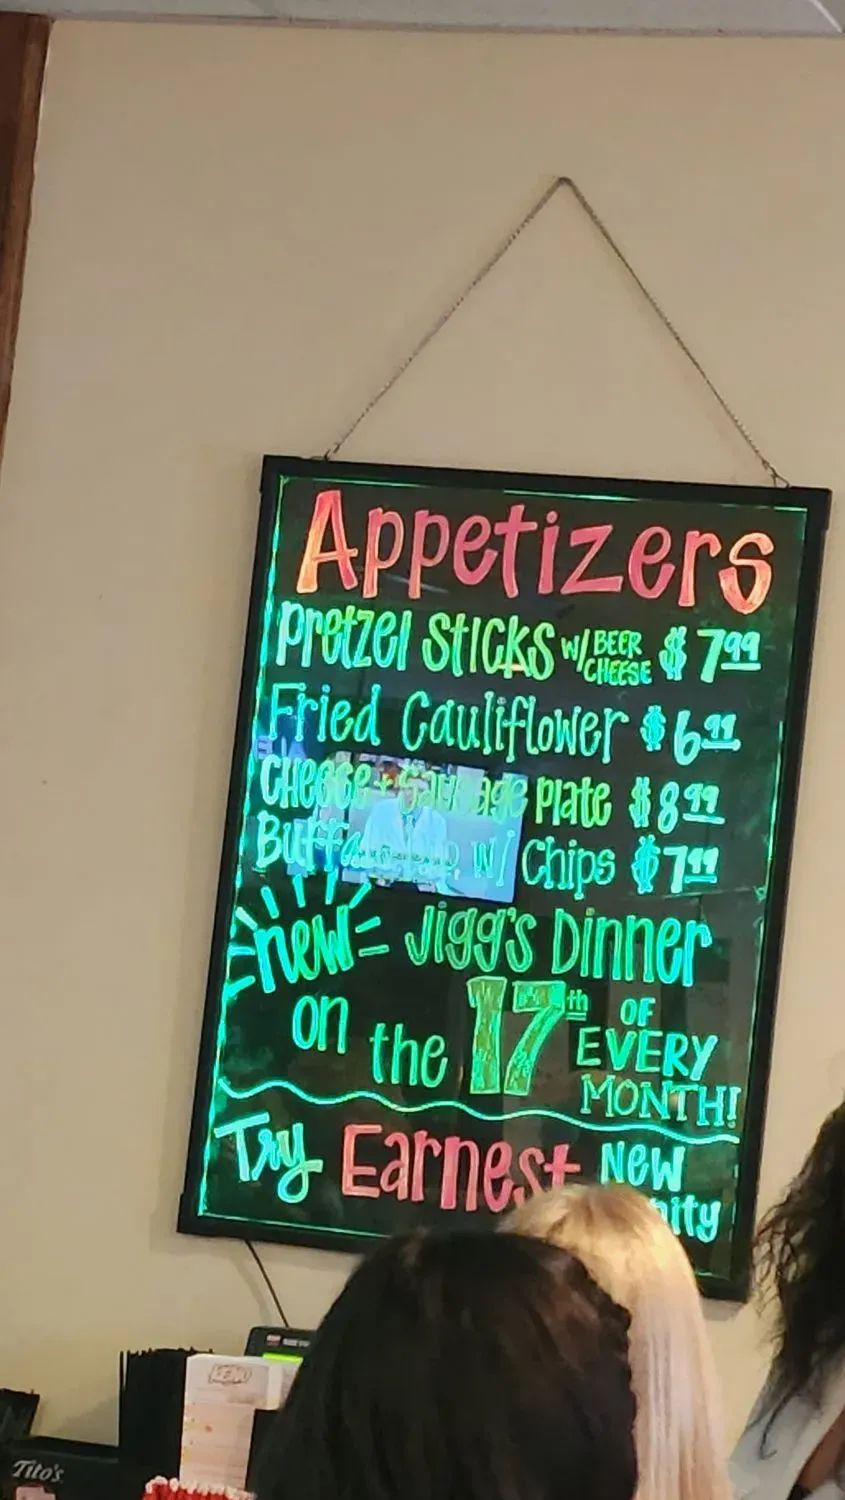 Appetizers
Pretzel Sticks W/ BEER CHEESE $7.99
Fried Cauliflower $6.99
Cheese + Sausage Plate $8.99
Buffalo Dip W/ Chips $7.99
new Jigg's Dinner
on the 17th OF EVERY MONTH!
Try Earnest New
KENO
Tito's